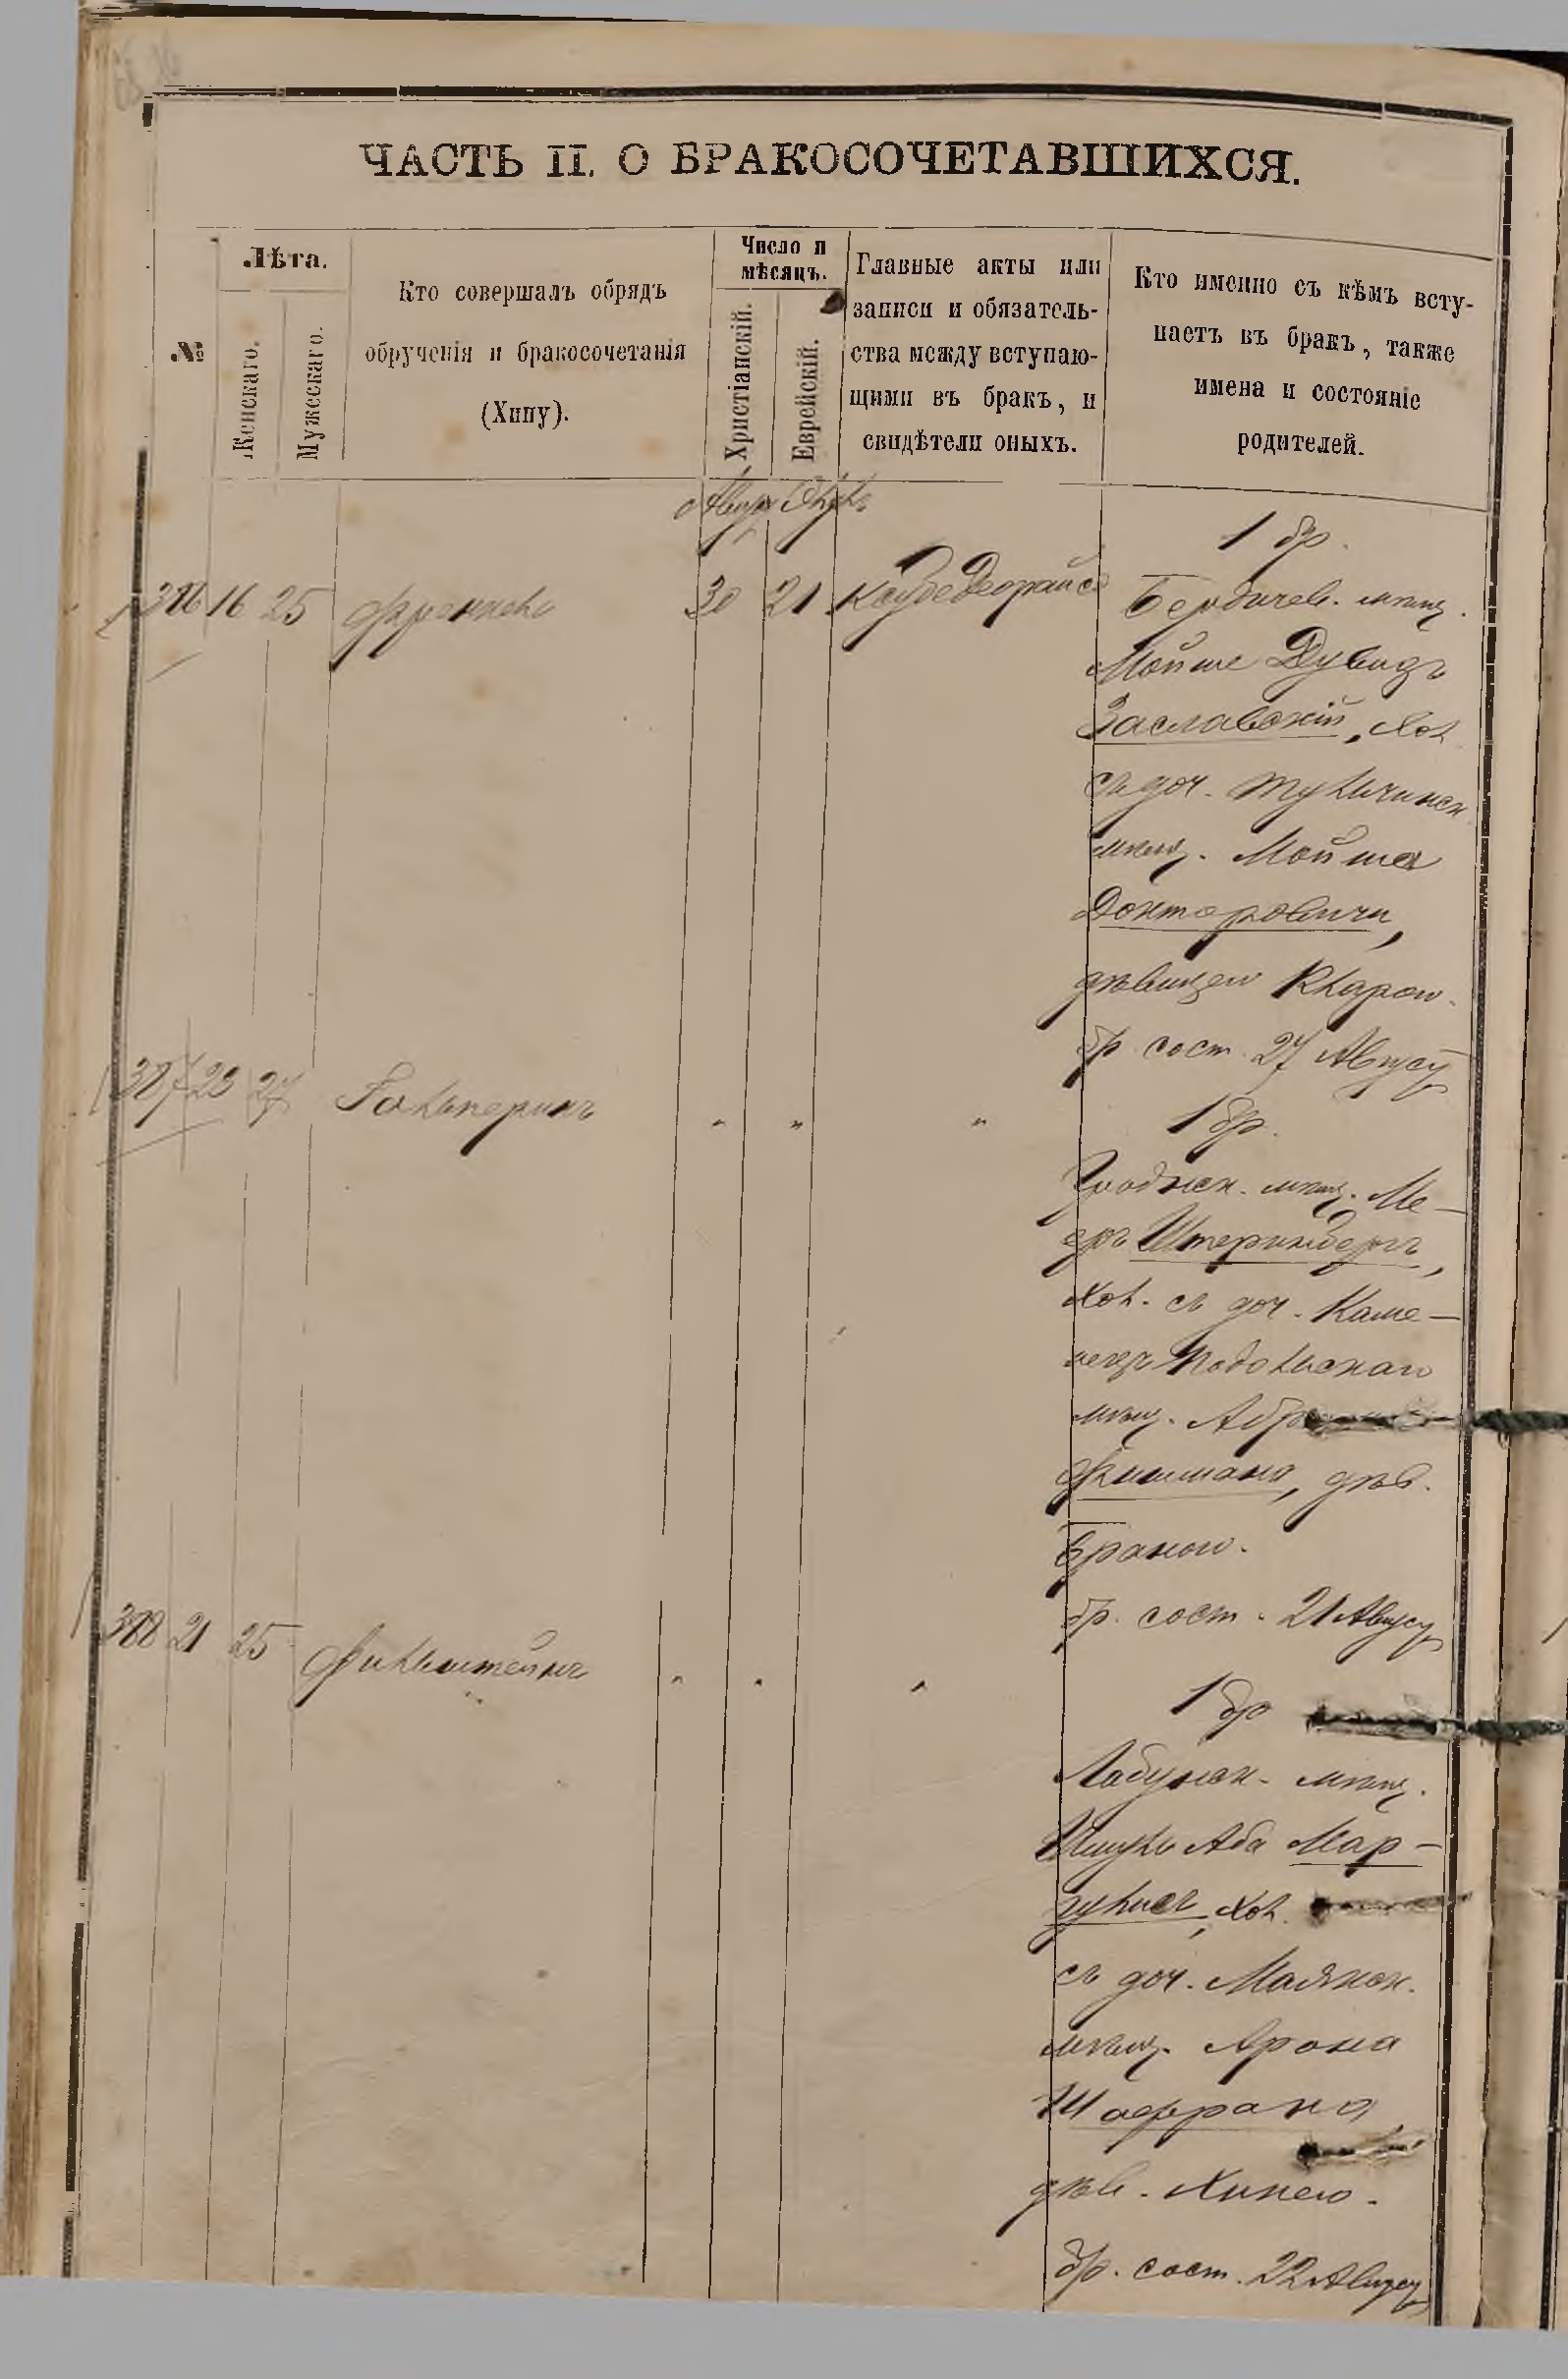 ЧАСТЬ II. О БРАКОСОЧЕТАВШИХСЯ.
№
Лѣта.
Женскаго.
Мужескаго.
Кто совершалъ обрядъ
обрученія и бракосочетанія
(Хипу).
Число и
мѣсяцъ.
Христіанскій.
Еврейскій.
Главные акты или
записи и обязатель-
ства между вступаю-
щими въ бракъ, и
свидѣтели оныхъ.
Кто именно съ кѣмъ всту-
паетъ въ бракъ, также
имена и состояніе
родителей.
Авгус
1 бр.
386 16 25 Френкель 30 21
Бердичев. мѣщ.
Мойше Дувидъ
Заславскій, хол.
съ доч. Тульчинск
мѣщ. Мойша
Докторовича,
дѣвицею Кларою.
бр. сост. 27 Август
387 23 27 Гальперинъ " " "
1 бр.
Гродненск. мѣщ. Ме-
еръ Штеринбергъ,
хол. съ доч. Каме-
нецъ Подольскаго
мѣщ.
Фишмана, дѣв.
Браною.
бр. сост. 21 Август
388 21 25 Финкельштейнъ " " "
1 бр
Лабунск. мѣщ.
Аба Мар-
гулисъ, хол.
съ доч.
мѣщ. Арона
Шафрана,
дѣв. Хинею.
бр. сост. 22 Август